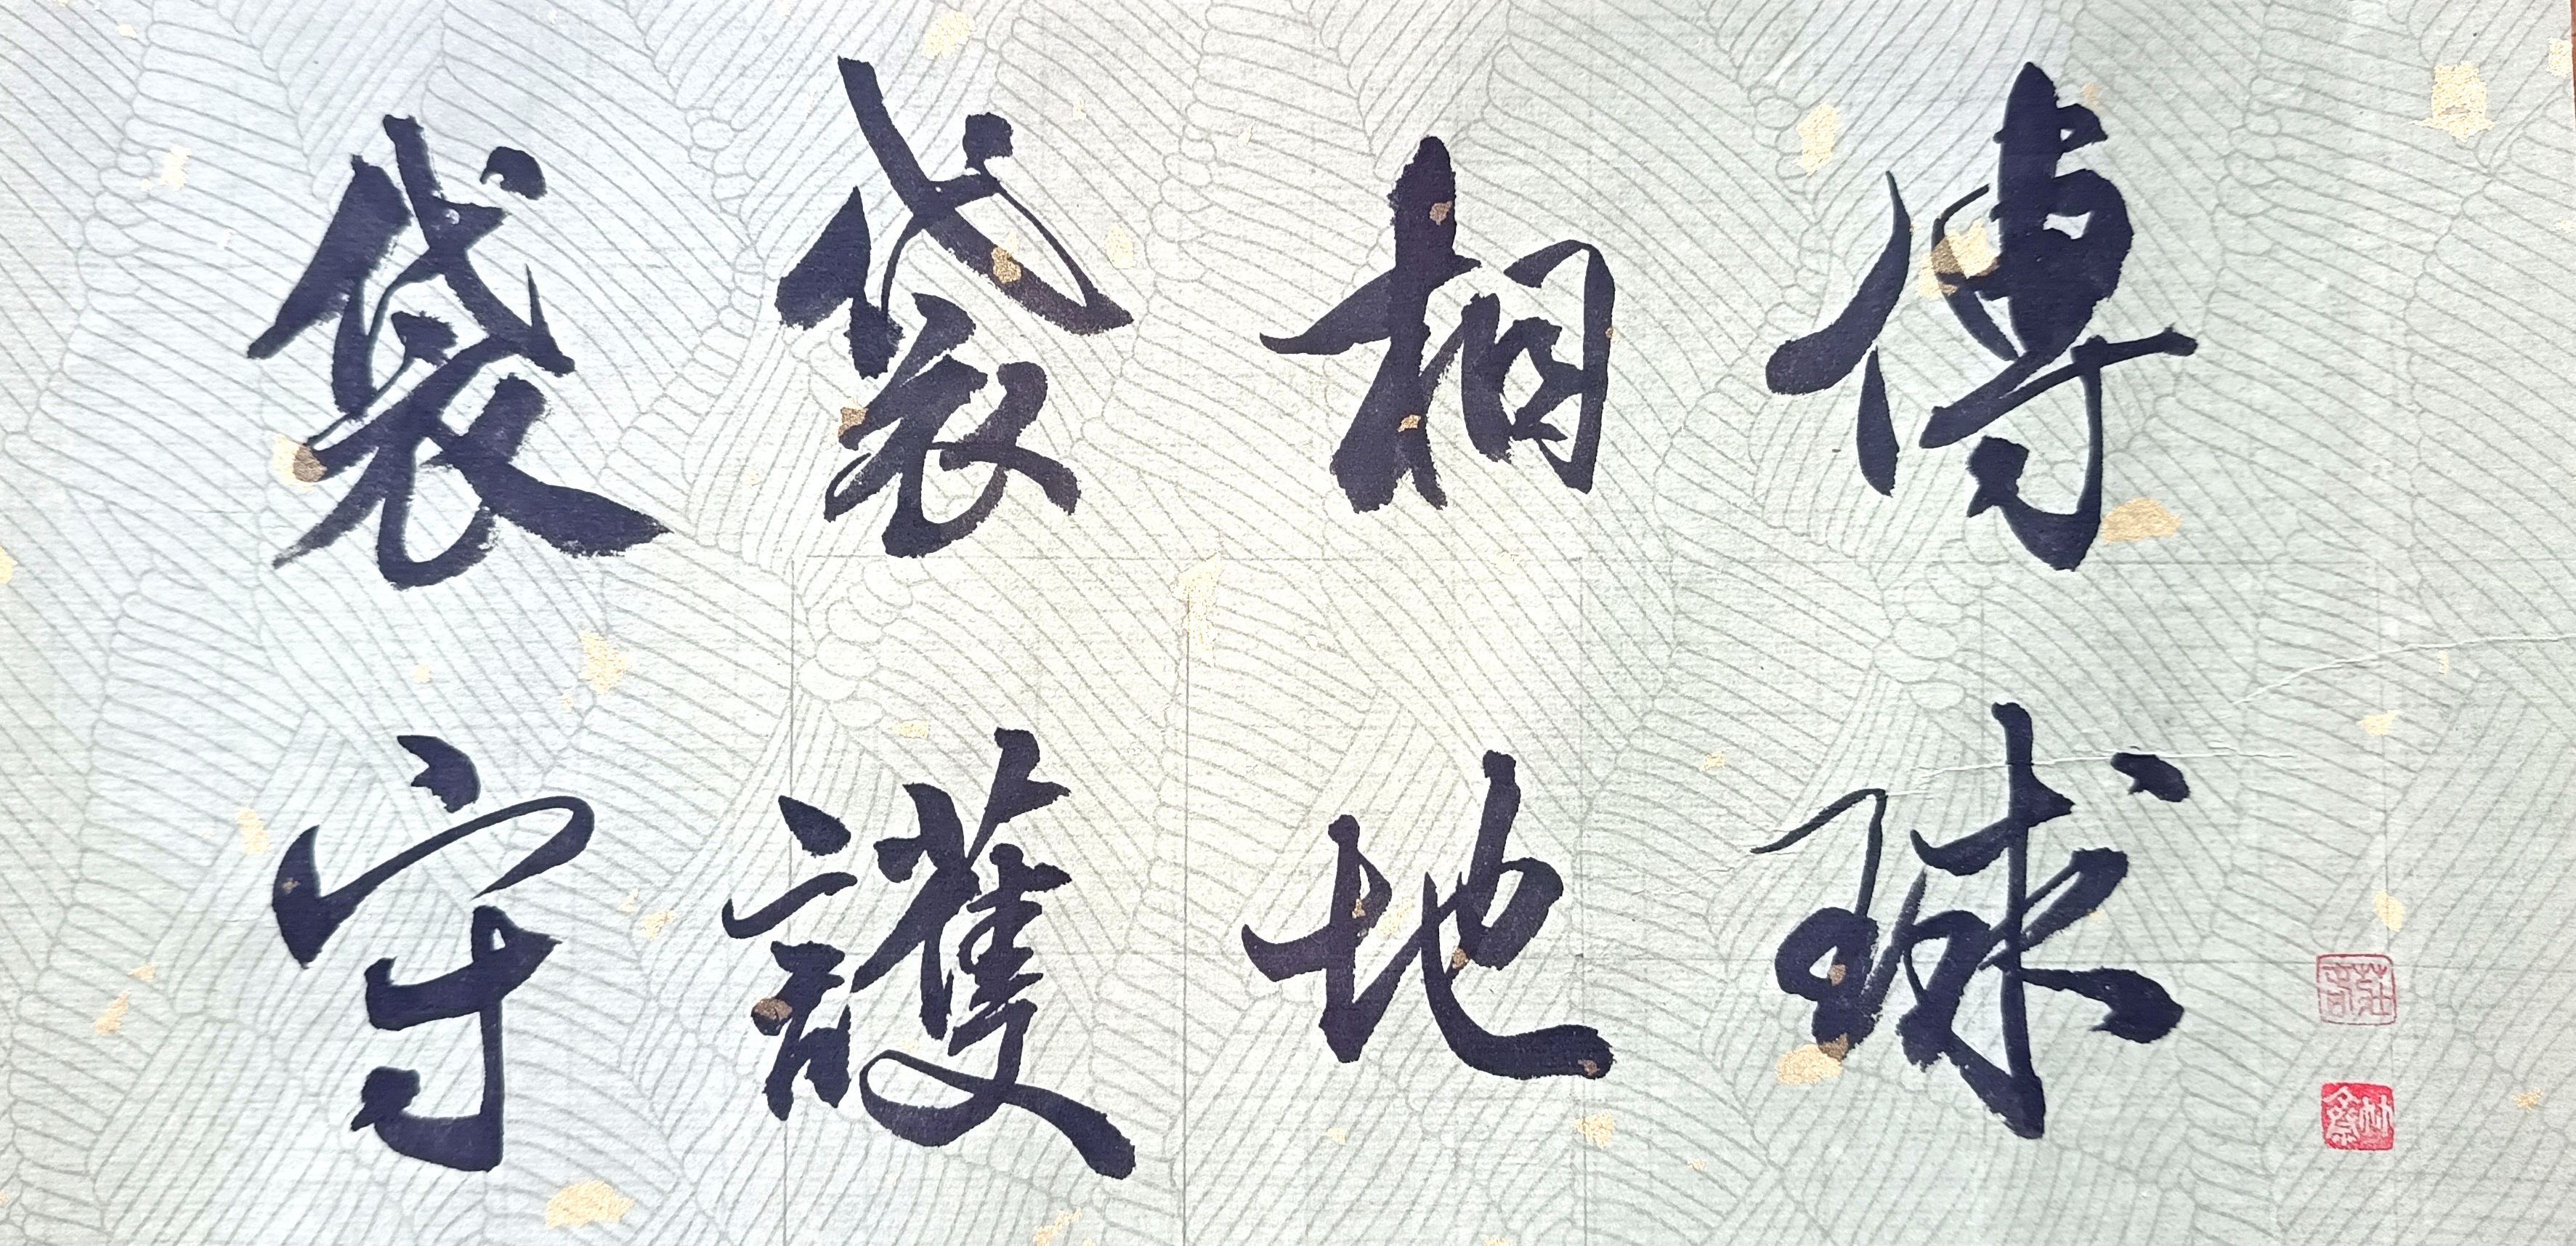 袋袋相傳
守護地球